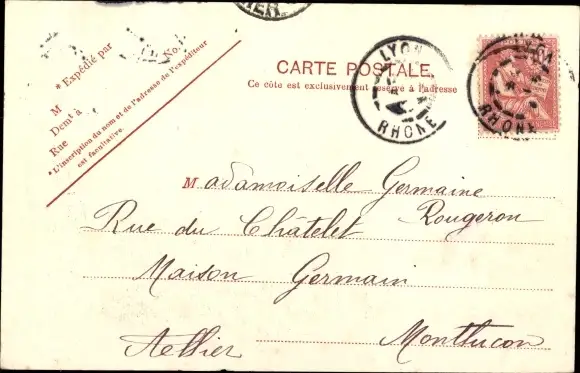 IER
* Expédié par No.
M
Demt à
Rue
* L'inscription du nom et de l'adresse de l'expéditeur
est facultative.
CARTE POSTALE
Ce côte est exclusivement reservé à l'adresse
LYON
RHONE
RHONE
Madamoiselle Germaine
Rougeron
Rue du Châtelet
Maison Germain
Montlucon
Aellier